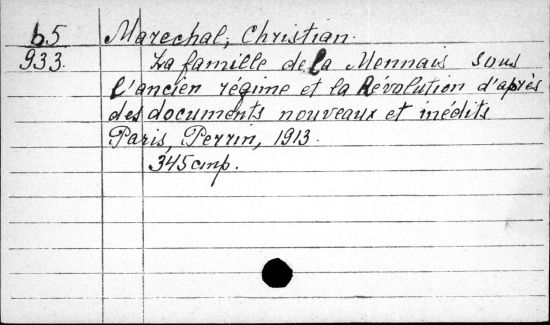 b5 Marechal, Christian.
933. La famille de la Mennais sous
l'ancien régime et la Révolution d'après
des documents nouveaux et inédits
Paris, Perrin, 1913.
345 cmp.